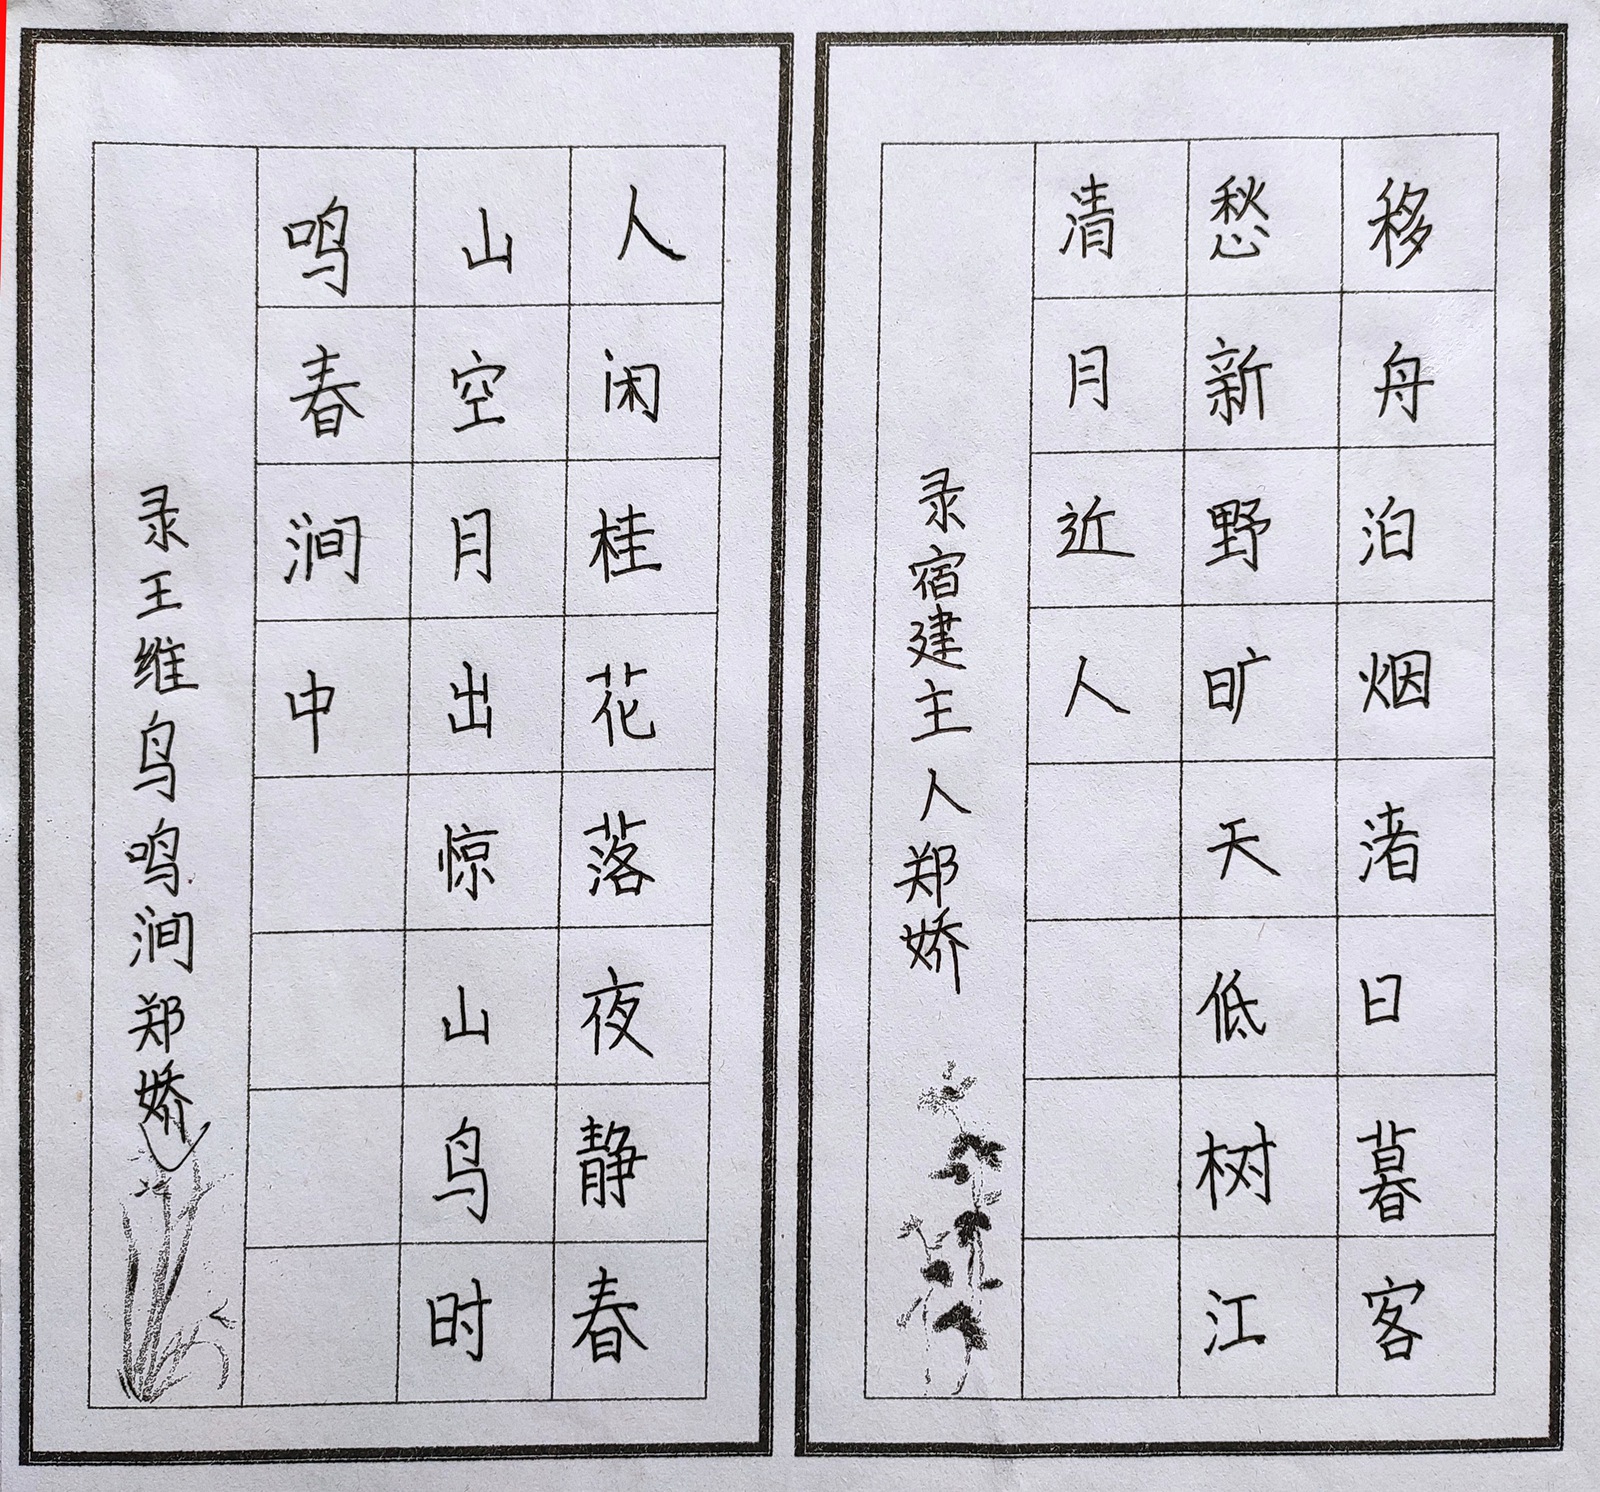 移舟泊烟渚日暮客
愁新野旷天低树江
清月近人
录宿建主人郑娇
人闲桂花落夜静春
山空月出惊山鸟时
鸣春涧中
录王维鸟鸣涧郑娇